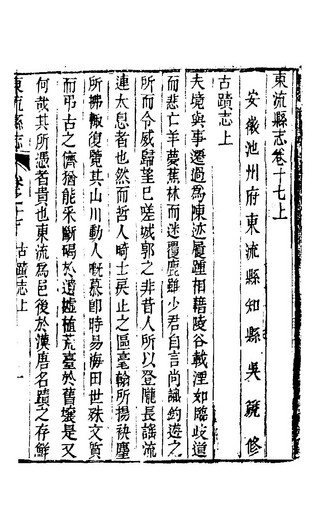 東流縣志卷十七上
安徽池州府東流縣知縣吳篪修
古蹟志上
夫境與事遷過為陳迹屨踵相藉陵谷載湮如臨歧道
而悲亡羊夢蕉林而迷覆鹿雖少君自言尚識約遊之
所而令威歸望已嗟城郭之非昔人所以登隴長謠流
連太息者也然而哲人畸士戾止之區毫翰所揚袂塵
所拂輒復覽其山川動人慨慕卽時易海田世殊文質
而弔古之儕猶能釆斷碣於遺墟植荒臺於舊壤是又
何哉其所憑者貴也東流為邑後於漢唐名蹟之存鮮
東流縣志
卷十七
古蹟志上
一